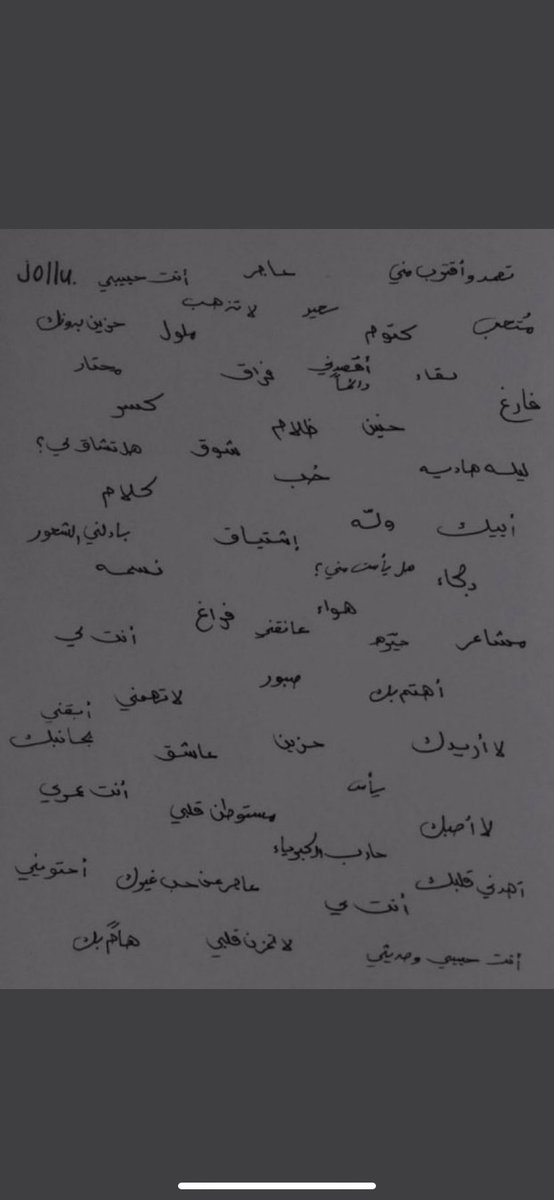 تمرد وأقترب مني عاجز أنت حبيبي Jollu.
سعيد لا تذهب
مُتعب كتوم ملول حزين بدونك
لقاء أقصدني دائماً فراق محتار
فارغ كسر
حنين ظلام شوق هل تشتاق لي؟
ليله هاديه حُب كلام
أبيك ولّه إشتياق بادلني الشعور
هل يأست مني؟ نسمه
هواء فراغ
مشاعر عانقني أنت لي
أهتم بك صبور لا تهمني
أبقني بجانبك
لا أريدك حزين عاشق
يأس أنت عمري
لا أحبك مستوطن قلبي
حارب الكبرياء
أهدني قلبك عاجز عن حب غيرك أحتويني
أنت لي
أنت حبيبي وحديثي لا تحزن قلبي هائم بك